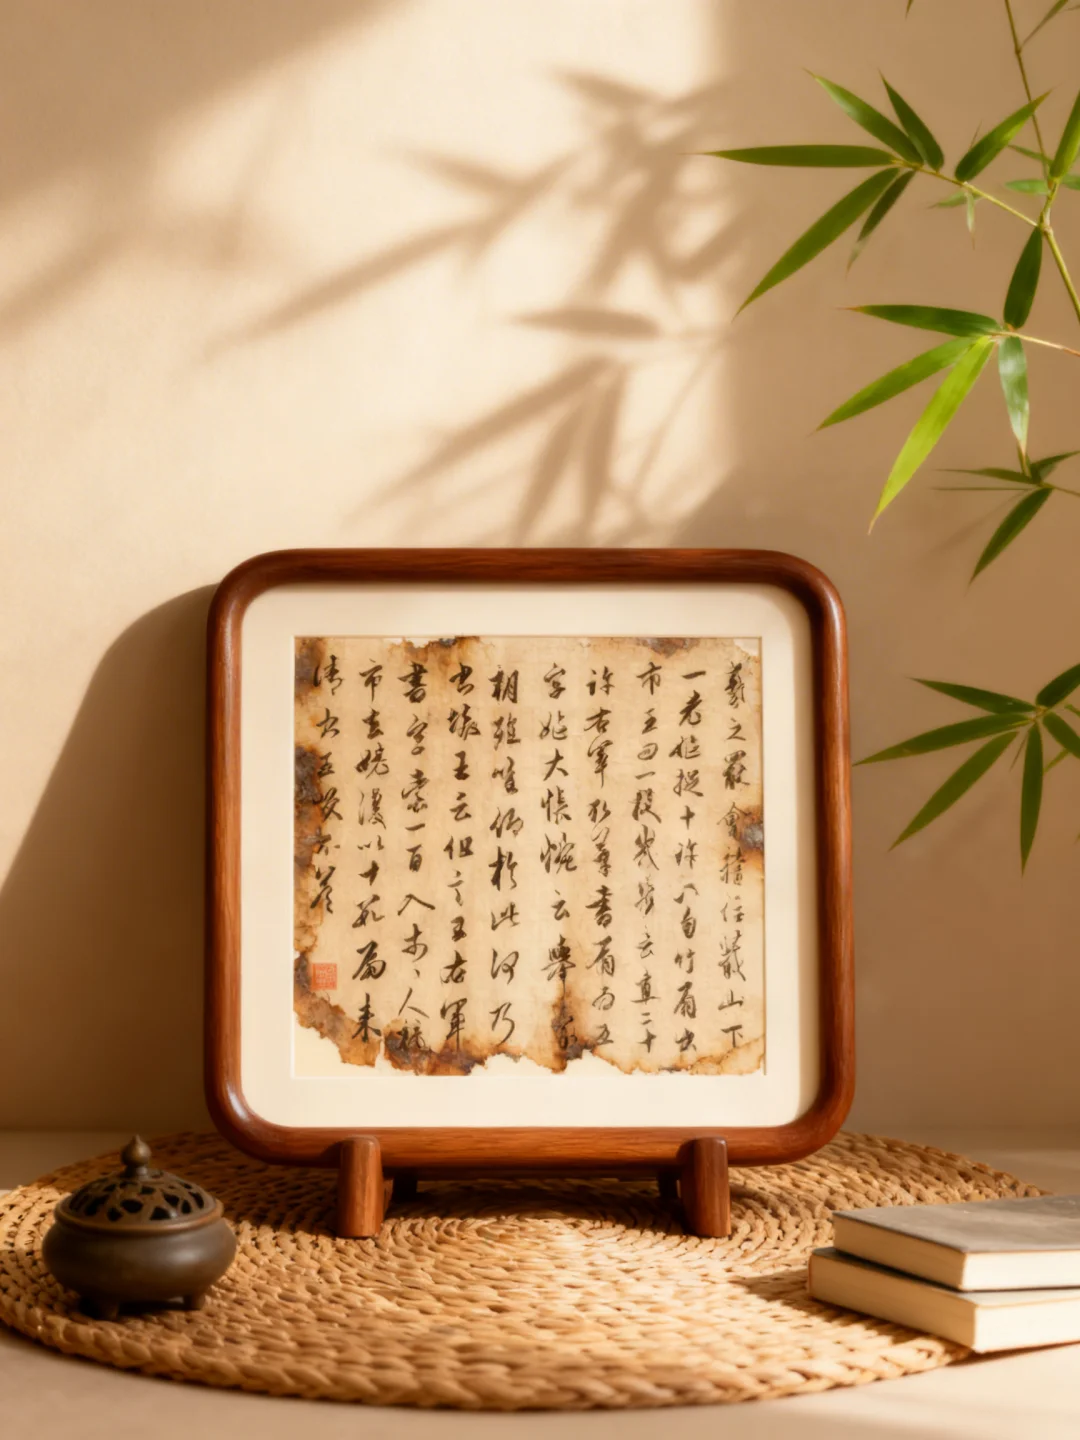 羲之罷會稽住蕺山下
一老嫗捉十許六角竹扇出
市王曰一枚幾錢云直二十
許右軍取筆書扇為五
字嫗大悵惋云舉家
朝飡唯仰於此何乃
書壞王云但言王右軍
書字索一百入市〻人競
市去嫗復以十數扇來
請書王笑不答